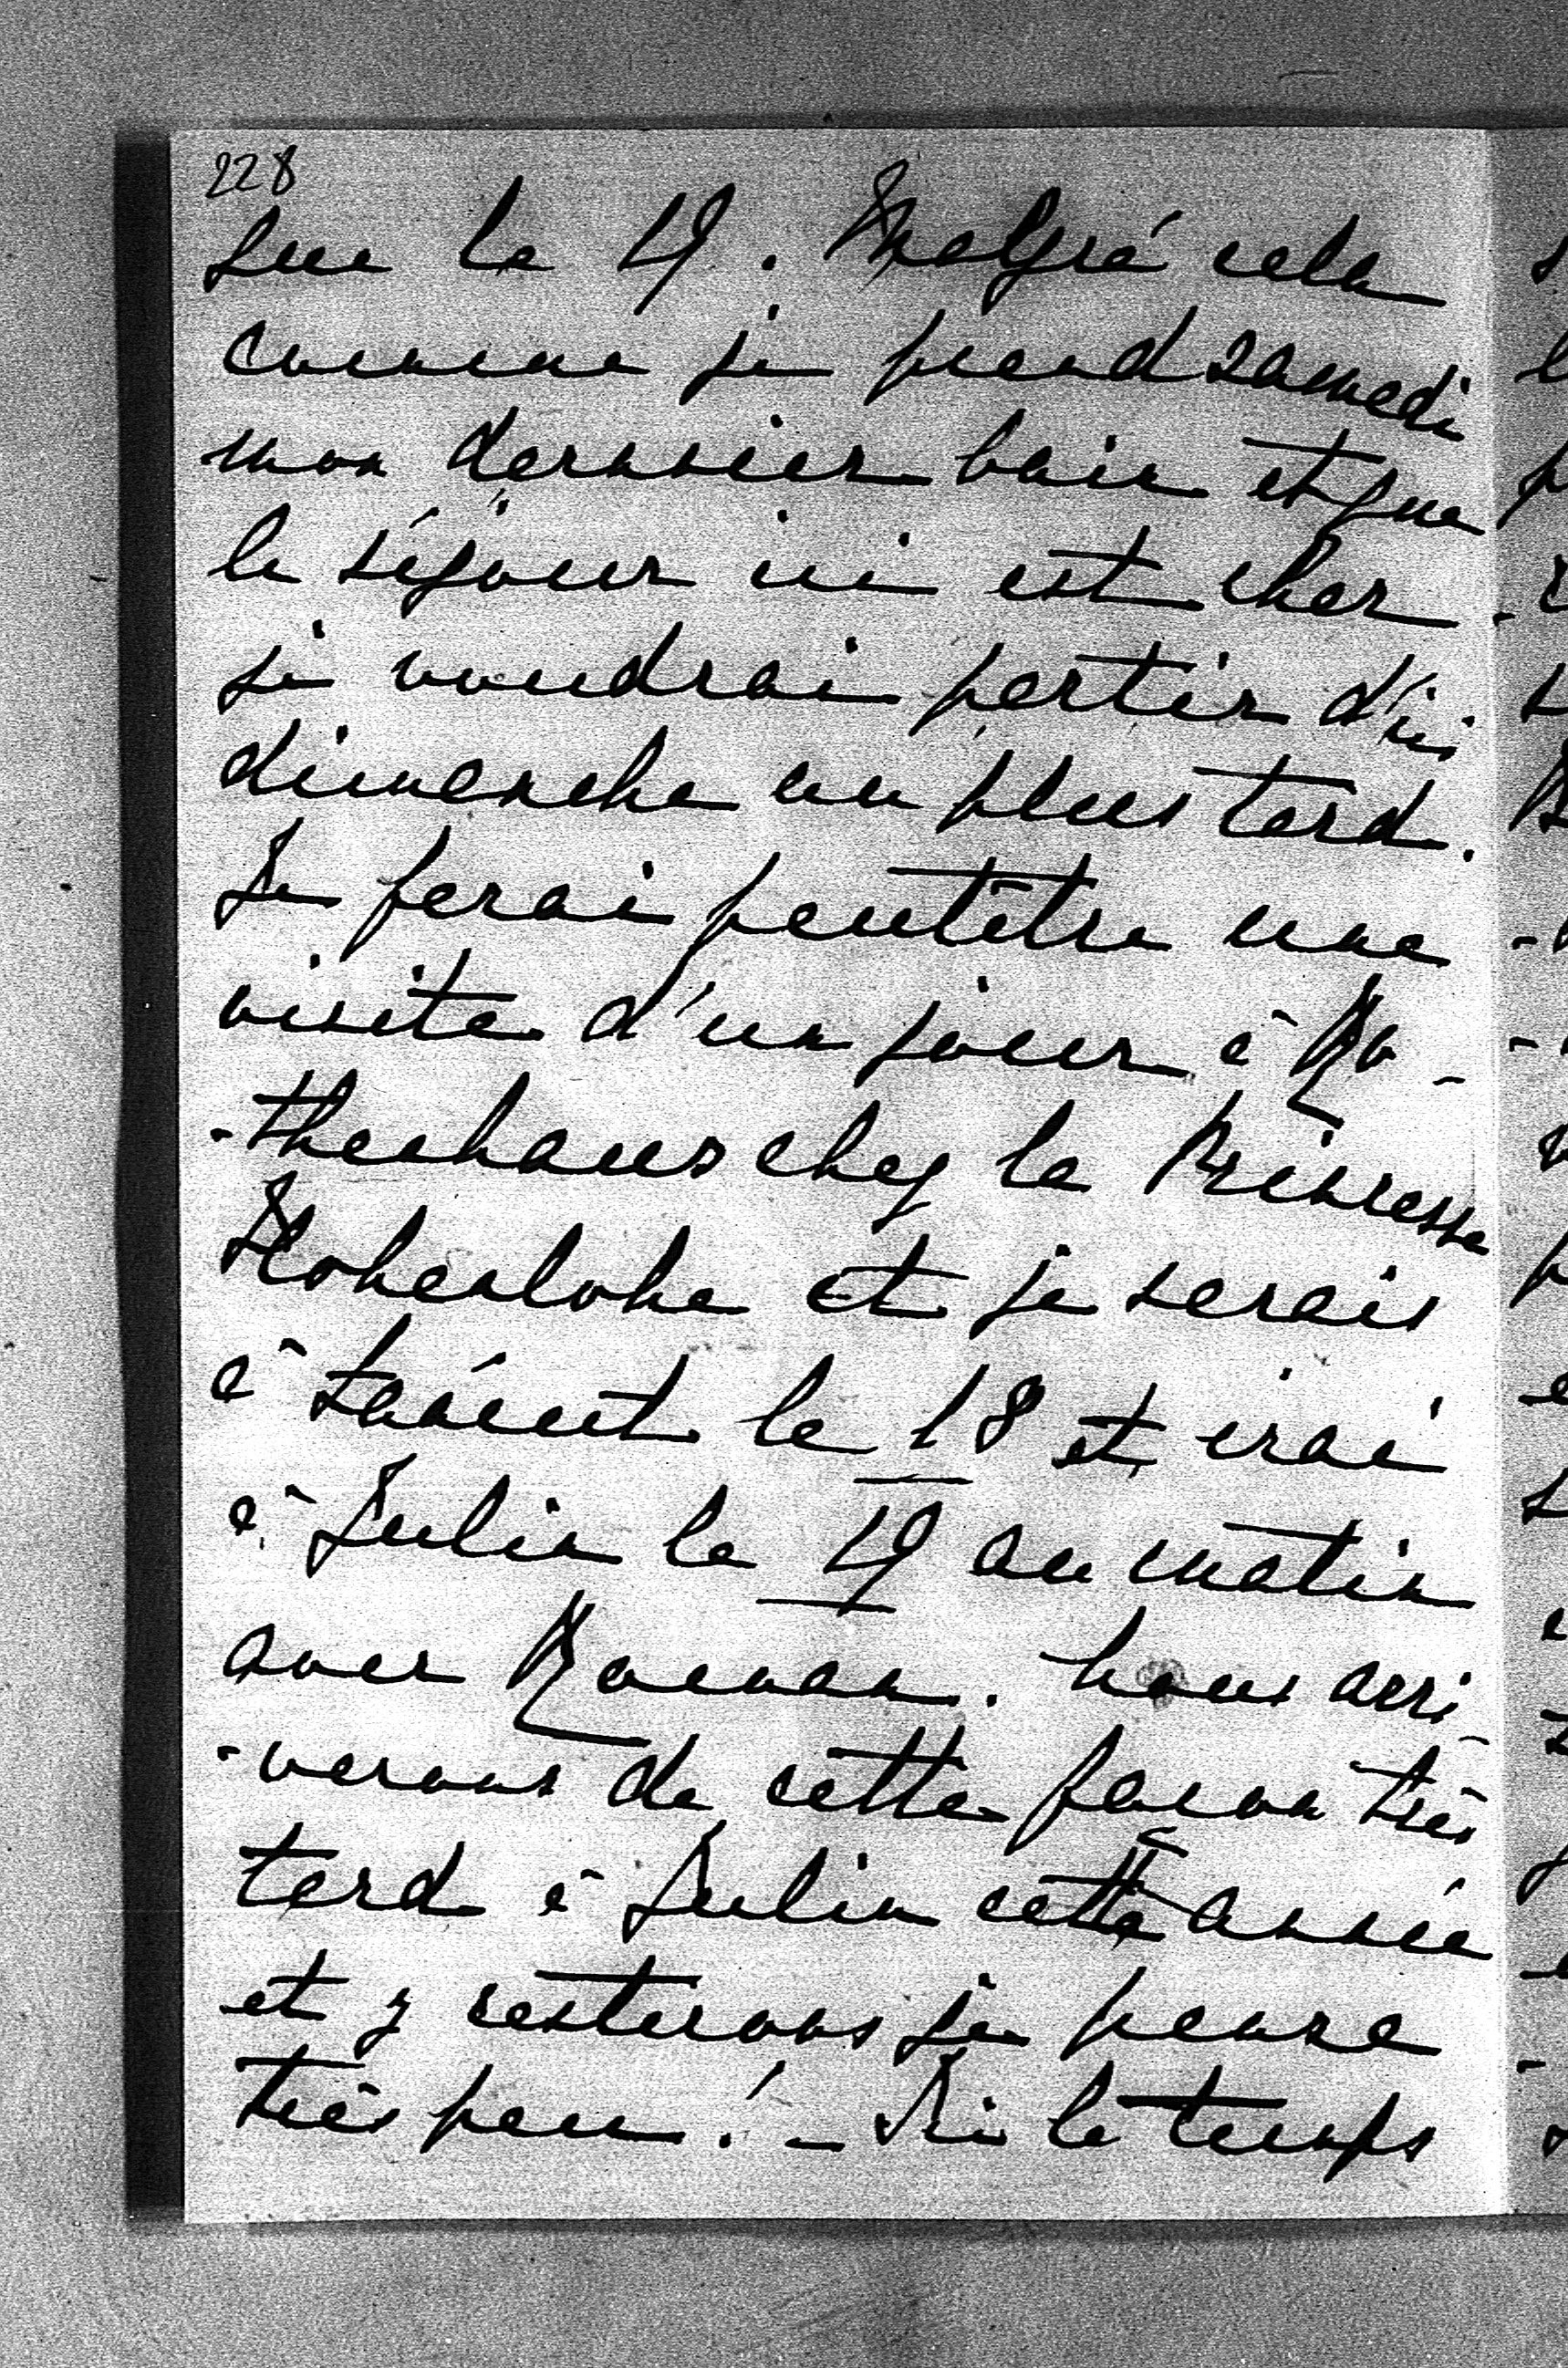 228
que le 19. Malgré cela
comme je prend samedi
mon dernier bain et que
le séjour ici est cher
je voudrai partir d'ici
dimanche au plus tard.
Je ferai peutêtre une
visite d'un jour à Ro-
-thenhaus chez la Princesse
Hohenlohe et je serais
à Łańcut le 18 et irai
à Julin le 19 au matin
avec Roman. Nous arri-
-verons de cette facon très
tard à Julin cette année
et y resterons je pense
très peu! - Si le temps